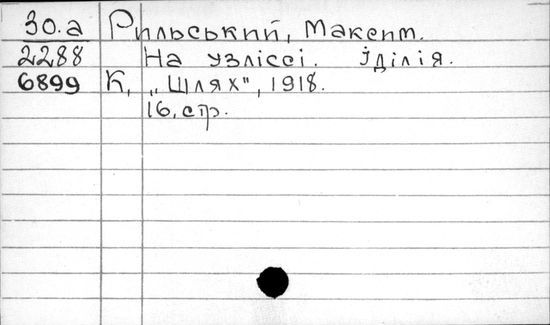 30.a Рильський, Максим.
2288 На узліссі. Їділія.
6899 К, „Шлях", 1918.
16, стр.